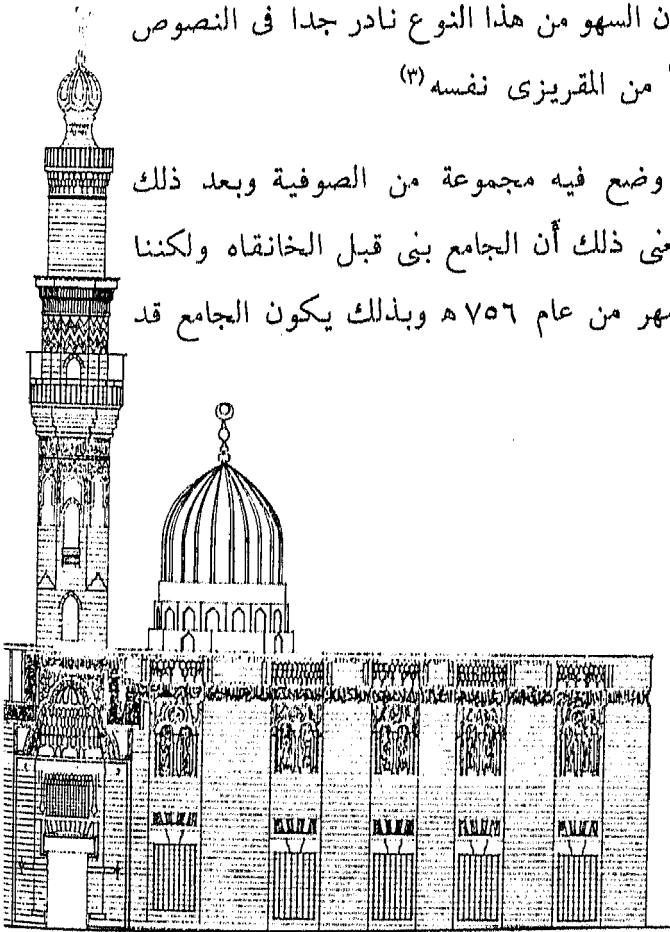 ن السهو من هذا النوع نادر جدا فى النصوص
من المقريزى نفسه (٣)
وضع فيه مجموعة من الصوفية وبعد ذلك
عنى ذلك أن الجامع بنى قبل الخانقاه ولكننا
هر من عام ٧٥٦ هـ وبذلك يكون الجامع قد